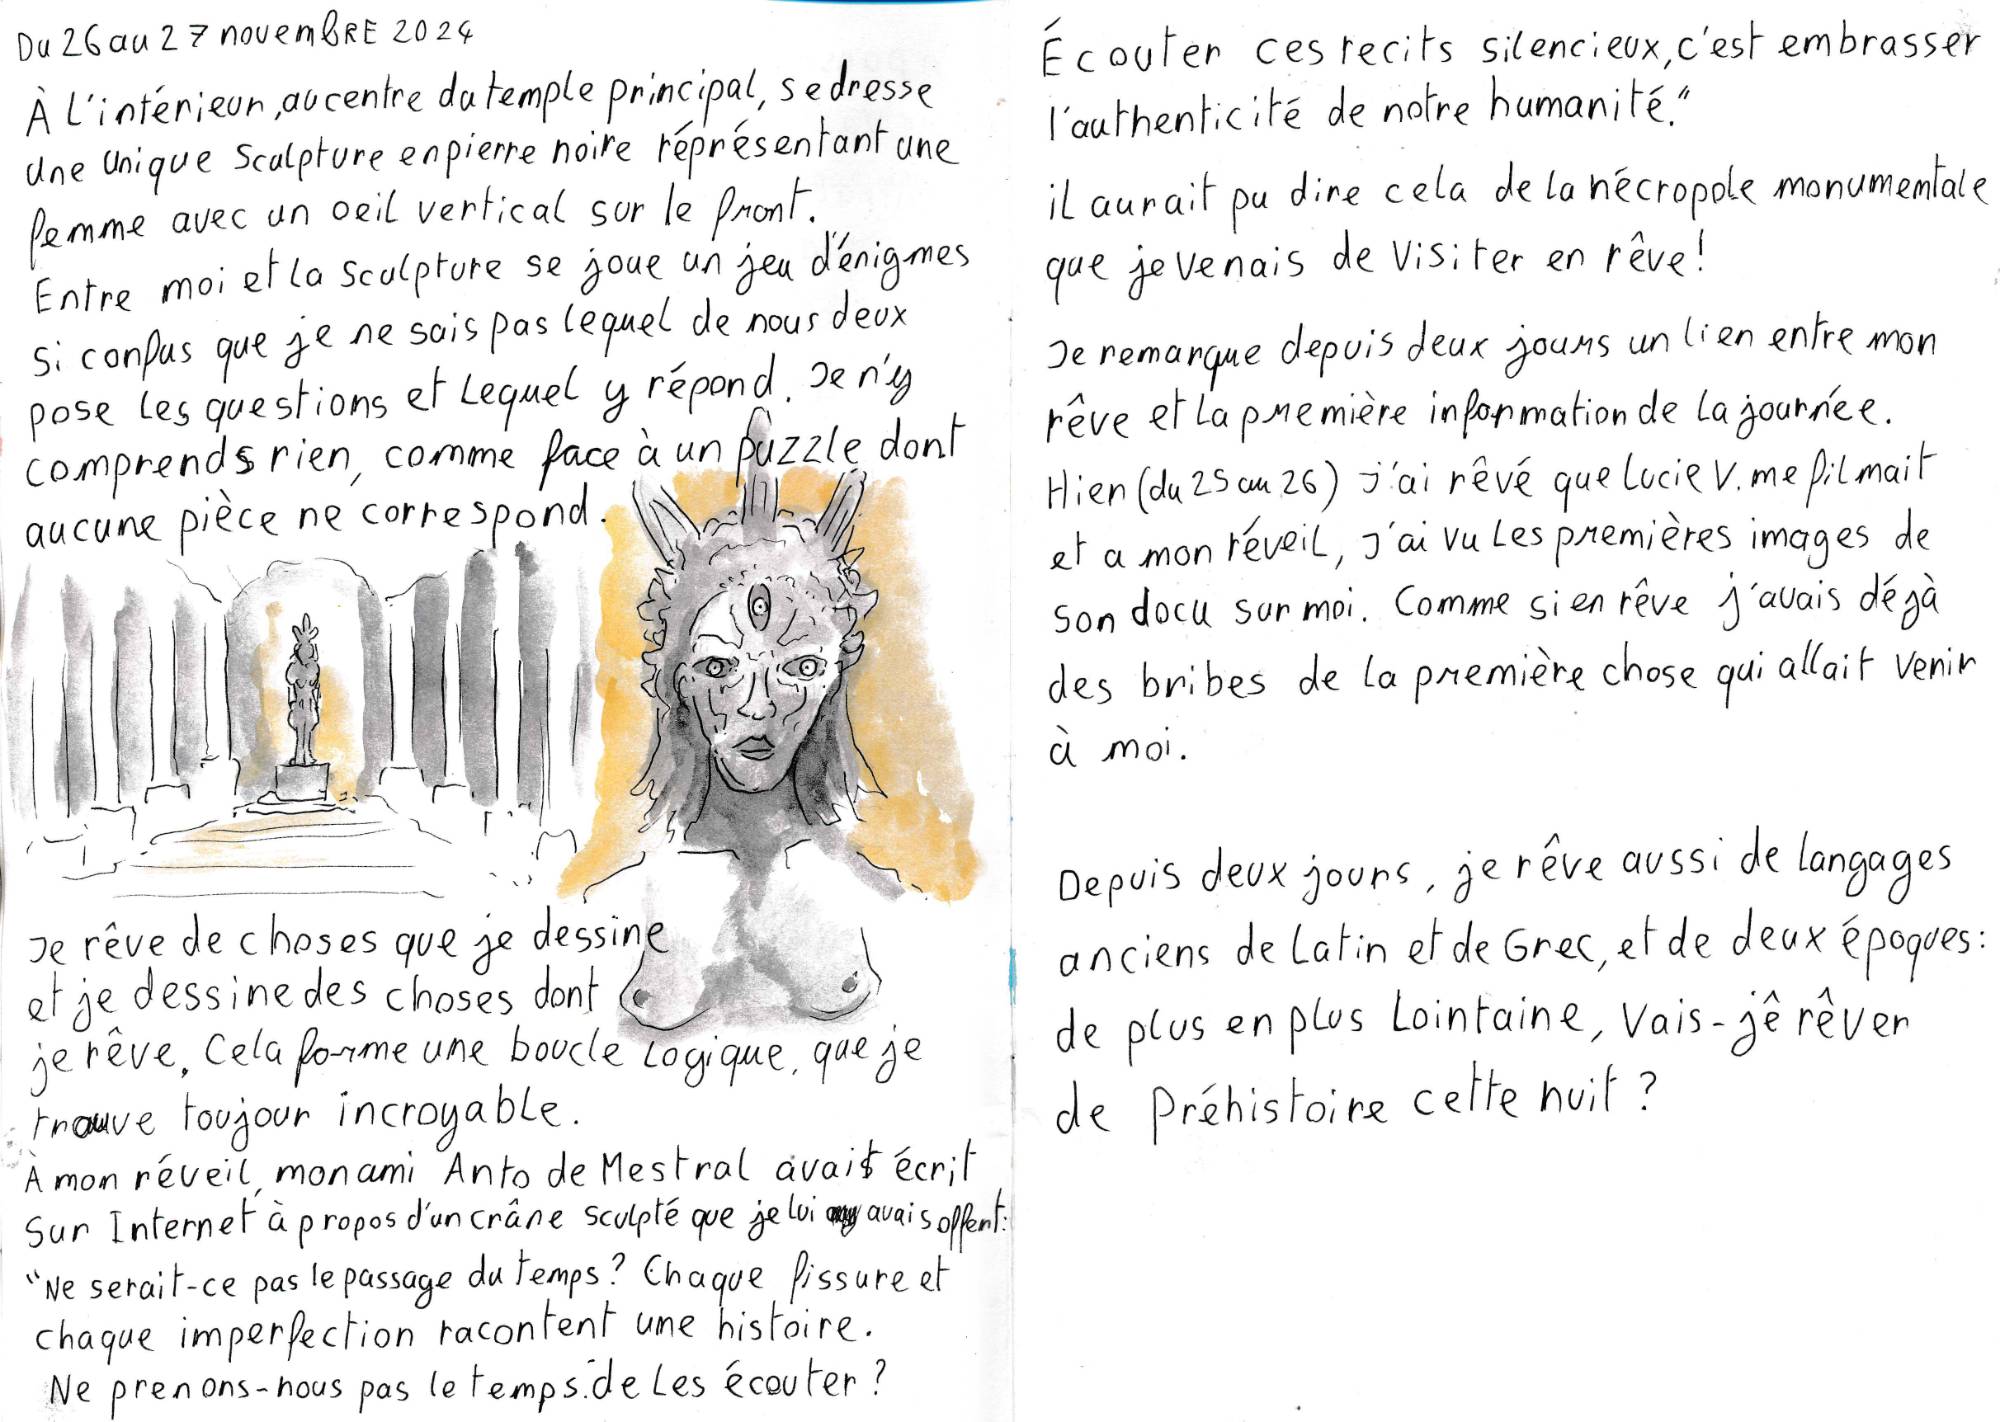 Du 26 au 27 novembre 2024
À l'intérieur, au centre du temple principal, se dresse
une unique sculpture en pierre noire réprésentant une
femme avec un oeil vertical sur le front.
Entre moi et la sculpture se joue un jeu d'énigmes
si confus que je ne sais pas lequel de nous deux
pose les questions et lequel y répond. Je n'y
comprends rien, comme face à un puzzle dont
aucune pièce ne correspond.
Je rêve de choses que je dessine
et je dessine des choses dont
je rêve. Cela forme une boucle logique, que je
trouve toujour incroyable.
À mon réveil, mon ami Anto de Mestral avait écrit
sur Internet à propos d'un crâne sculpté que je lui avais offert:
"Ne serait-ce pas le passage du temps? Chaque fissure et
chaque imperfection racontent une histoire.
Ne prenons-nous pas le temps de les écouter?
Écouter ces recits silencieux, c'est embrasser
l'authenticité de notre humanité."
il aurait pu dire cela de la nécropole monumentale
que je venais de visiter en rêve!
Je remarque depuis deux jours un lien entre mon
rêve et la première information de la journée.
Hier (du 25 au 26) j'ai rêvé que Lucie V. me filmait
et a mon réveil, j'ai vu les premières images de
son docu sur moi. Comme si en rêve j'avais déjà
des bribes de la première chose qui allait venir
à moi.
Depuis deux jours, je rêve aussi de langages
anciens de Latin et de Grec, et de deux époques:
de plus en plus lointaine, vais-jê rêver
de Préhistoire cette nuit?